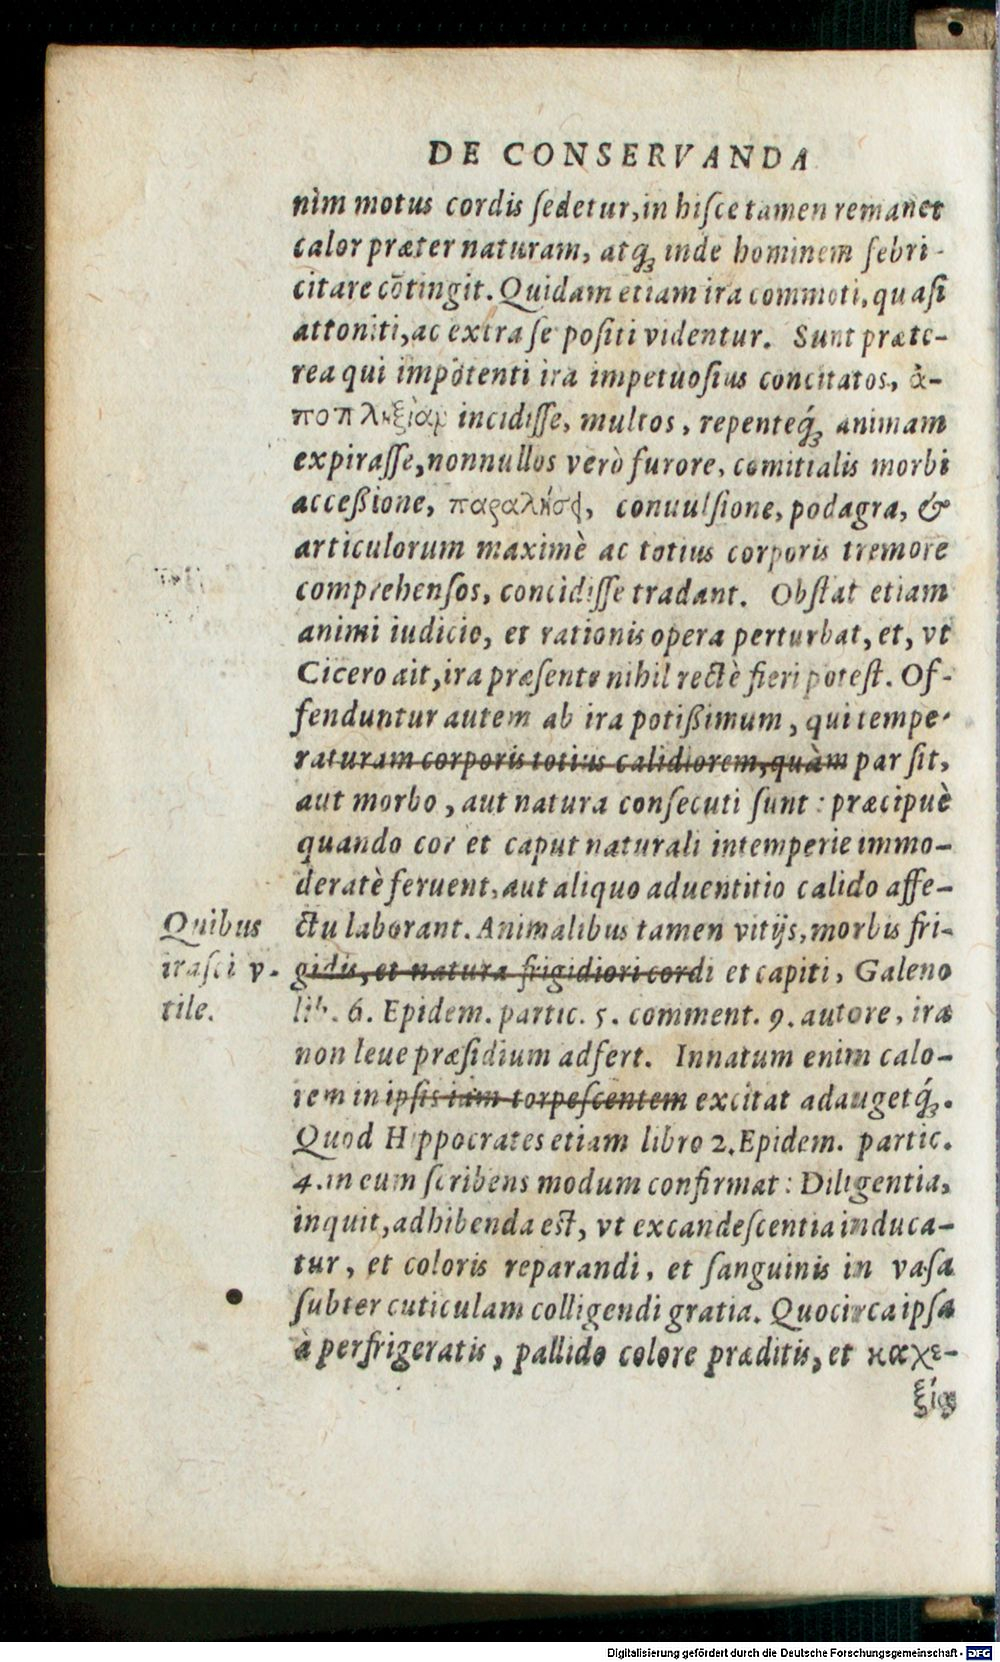 DE CONSERVANDA
nìm motus cordis ſedetur, in hiſce tamen remanet
calor præter naturam, atq́ꝫ inde hominem febri-
citare cõtingit. Quidam etiam ira commoti, quaſi
attoniti, ac extra ſe poſiti videntur. Sunt præte-
rea qui impotenti ira impetuoſius concitatos, ἀ-
ποπληξίαμ incidiſſe, multos, repenteq́ꝫ animam
expiraſſe, nonnullos verò furore, comitialis morbi
acceßione, παραλύσϕ, conuulſione, podagra, &
articulorum maximè ac totius corporis tremore
comprehenſos, concidiſſe tradant. Obſtat etiam
animi iudicio, et rationis opera perturbat, et, vt
Cicero ait, ira præſente nihil rectè fieri poteſt. Of-
fenduntur autem ab ira potißimum, qui tempe-
raturam corporis totius calidiorem, quàm par ſit,
aut morbo, aut natura conſecuti ſunt: præcipuè
quando cor et caput naturali intemperie immo-
deratè feruent, aut aliquo aduentitio calido affe-
Quibus
iraſci v-
tile.
ctu laborant. Animalibus tamen vitijs, morbis fri-
gidis, et natura frigidiori cordi et capiti, Galeno
lib. 6. Epidem. partic. 5. comment. 9. autore, ira
non leue præſidium adfert. Innatum enim calo-
rem in ipſis iam torpeſcentem excitat adaugetq́ꝫ.
Quod Hippocrates etiam libro 2. Epidem. partic.
4. in eum ſcribens modum confirmat: Diligentia,
inquit, adhibenda eſt, vt excandeſcentia induca-
tur, et coloris reparandi, et ſanguinis in vaſa
ſubter cuticulam colligendi gratia. Quocirca ipſa
à perfrigeratis, pallido colore præditis, et καχε-
ξίᾳ
Digitalisierung gefördert durch die Deutsche Forschungsgemeinschaft - DFG